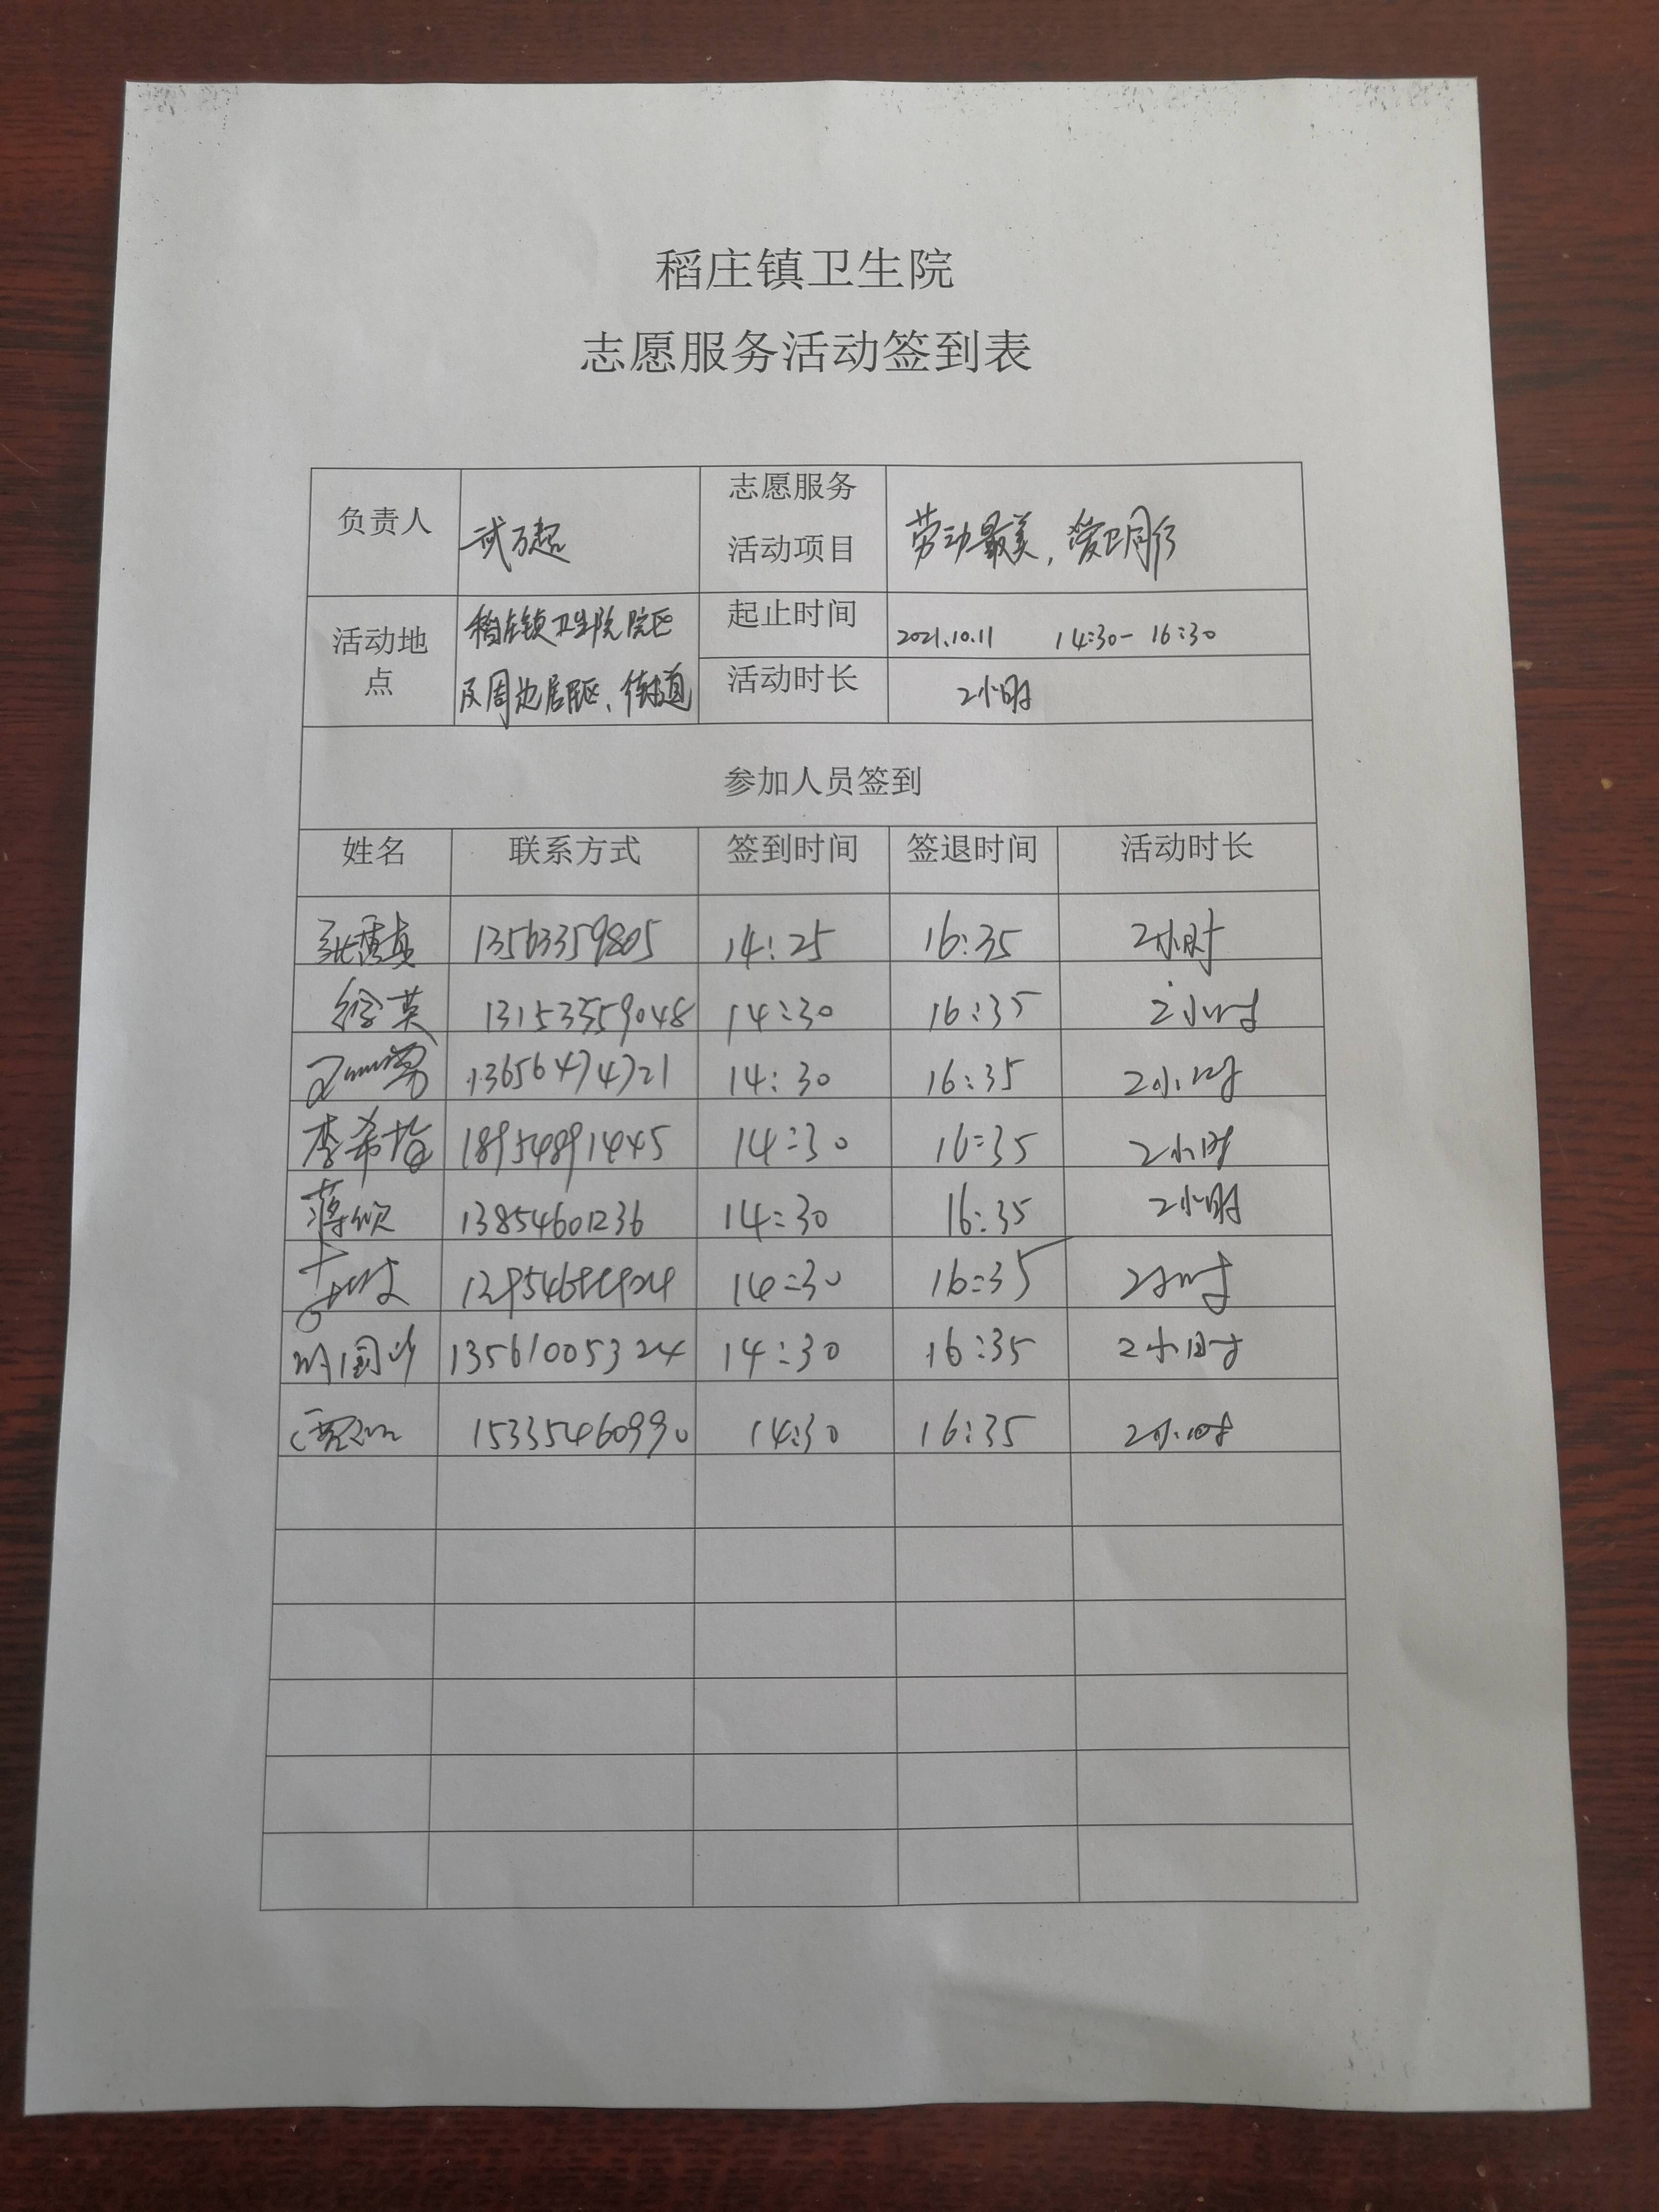 稻庄镇卫生院
志愿服务活动签到表
负责人 武万超 志愿服务活动项目 劳动最美，爱卫同行
活动地点 稻庄镇卫生院院区及周边居民区、街道 起止时间 2021.10.11 14:30-16:30
活动时长 2小时
参加人员签到
姓名 联系方式 签到时间 签退时间 活动时长
13563359805 14:25 16:35 2小时
徐英 13153359048 14:30 16:35 2小时
13656474721 14:30 16:35 2小时
李希 18954891445 14:30 16:35 2小时
蒋欣 13854601236 14:30 16:35 2小时
14:30 16:35 2小时
13561005324 14:30 16:35 2小时
15335460990 14:30 16:35 2小时